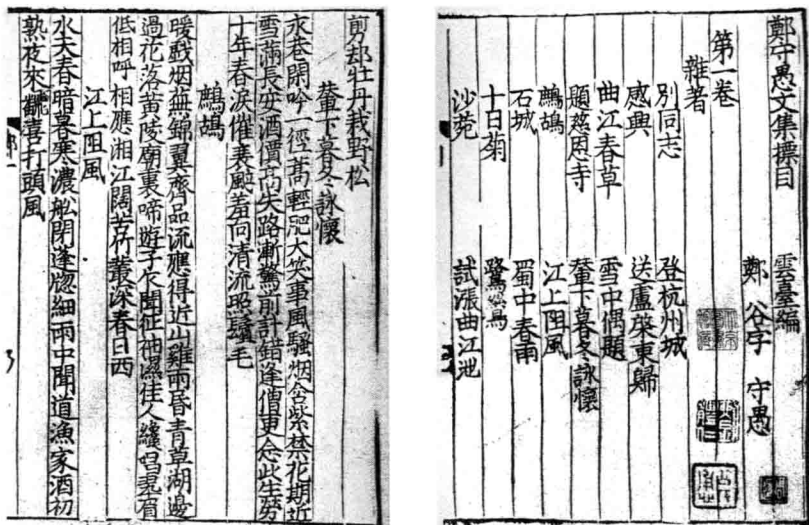 鄭守愚文集摽目 雲臺編
鄭谷字 守愚
第一卷
雜著
別同志 登杭州城
感興 送盧棨東歸
曲江春草 雪中偶題
題慈恩寺 輦下暮冬詠懷
鷓鴣 江上阻風
石城 蜀中春雨
十日菊 鷺鷥
沙苑 試漲曲江池
剪却牡丹栽野松
輦下暮冬詠懷
永巷閑吟一徑蒿輕肥大笑事風騷烟含紫禁花期近
雪滿長安酒價高失路漸驚前計錯逢僧更念此生勞
十年春淚催衰颯羞向清流照鬢毛
鷓鴣
暖戲烟蕪錦翼齊品流應得近山雞雨昏青草湖邊
過花落黄陵廟裏啼遊子乍聞征袖濕佳人纔唱翠眉
低相呼相應湘江闊苦竹叢深春日西
江上阻風
水天春暗暮寒濃舩閉逢窓細雨中聞道漁家酒初
熟夜來翻喜打頭風